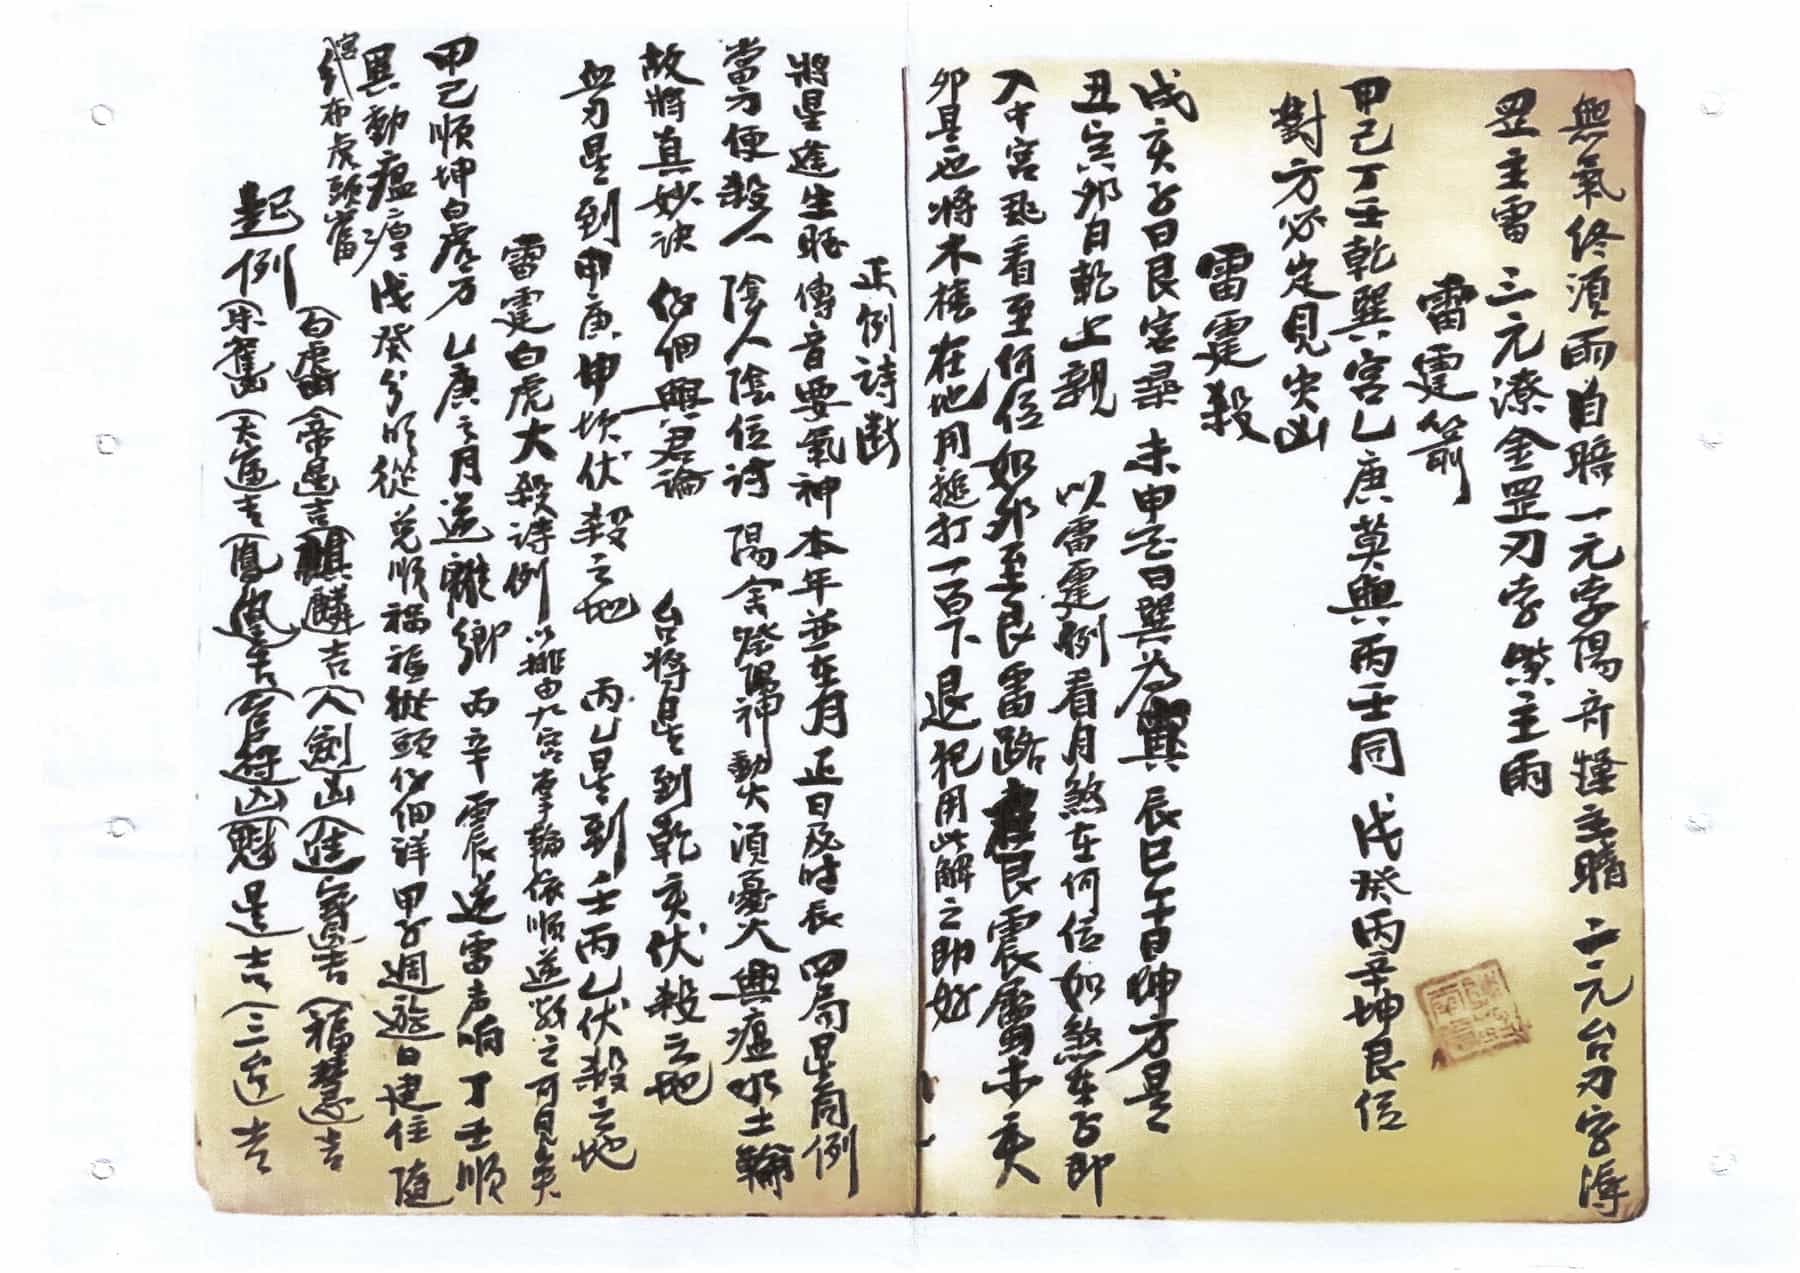 無氣終須雨自晴 一元字陽音 主晴 二元台刃字
主雷 三元潦金罡刃字 主雨
雷霆箭
甲己丁壬乾巽宮乙庚莫與丙壬同 戊癸丙辛坤艮位
對方必定見災凶
雷霆殺
戌亥子日艮宮尋 未申酉日巽為 辰巳午日坤方是
丑寅卯日乾上親 以雷霆例看月煞在何位如煞在子即
入中宮 看至何位如卯至艮雷路 艮震 未亥
卯是也將木樁在地用搥打一百下退犯用此解之即好
正例詩斷
將星逢生旺傳音要氣神本年並在月 正日及時辰 四局是同例
當方便殺人 陰人陰位 陽 陽神動火須憂火興瘟 水土輪
故將真妙訣 個與君論 台將星到乾亥伏殺之地
血刃星到甲庚坤坎伏殺之地 丙乙星到壬丙乙伏殺之地
雷霆白虎大殺詩例 以排由九宮 輪依順逆數之可見矣
甲己順坤白虎方 乙庚之月逆離鄉 丙辛震辰逆雷声响 丁壬順
巽動瘟瘴 戊癸分明從兌順 禍福從頭 個詳 甲子週遊日建住 隨
布虎頭當
(白虎凶 (帝星吉 (麒麟吉 (人劍凶 (進寶吉 (福慧吉
起例 (朱雀凶 (天 吉 (鳳凰吉 (官符凶 (魁星吉 (三台吉